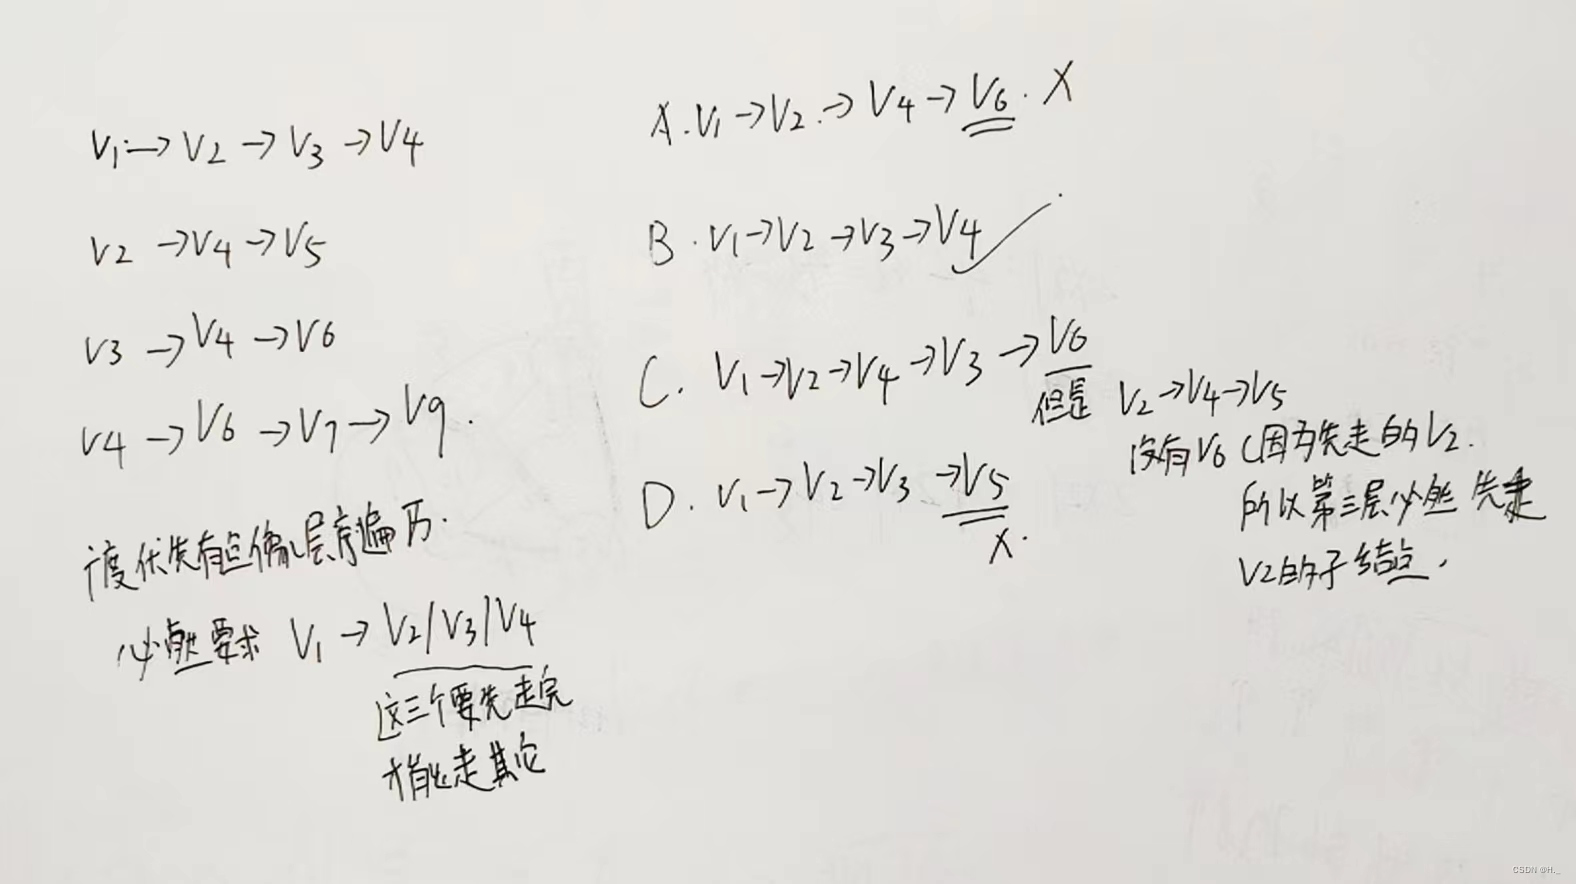 V1→V2→V3→V4
V2→V4→V5
V3→V4→V6
V4→V6→V7→V9.
广度优先有点像层序遍历.
必然要求 V1→V2/V3/V4
这三个要先走完
才能走其它
A.V1→V2.→V4→V6. X
B.V1→V2→V3→V4 ✓
C. V1→V2→V4→V3→V6
但是 V2→V4→V5
没有V6 (因为先走的V2.
所以第三层必然先走
V2的子结点.
D. V1→V2→V3→V5
X.
CSDN @H._